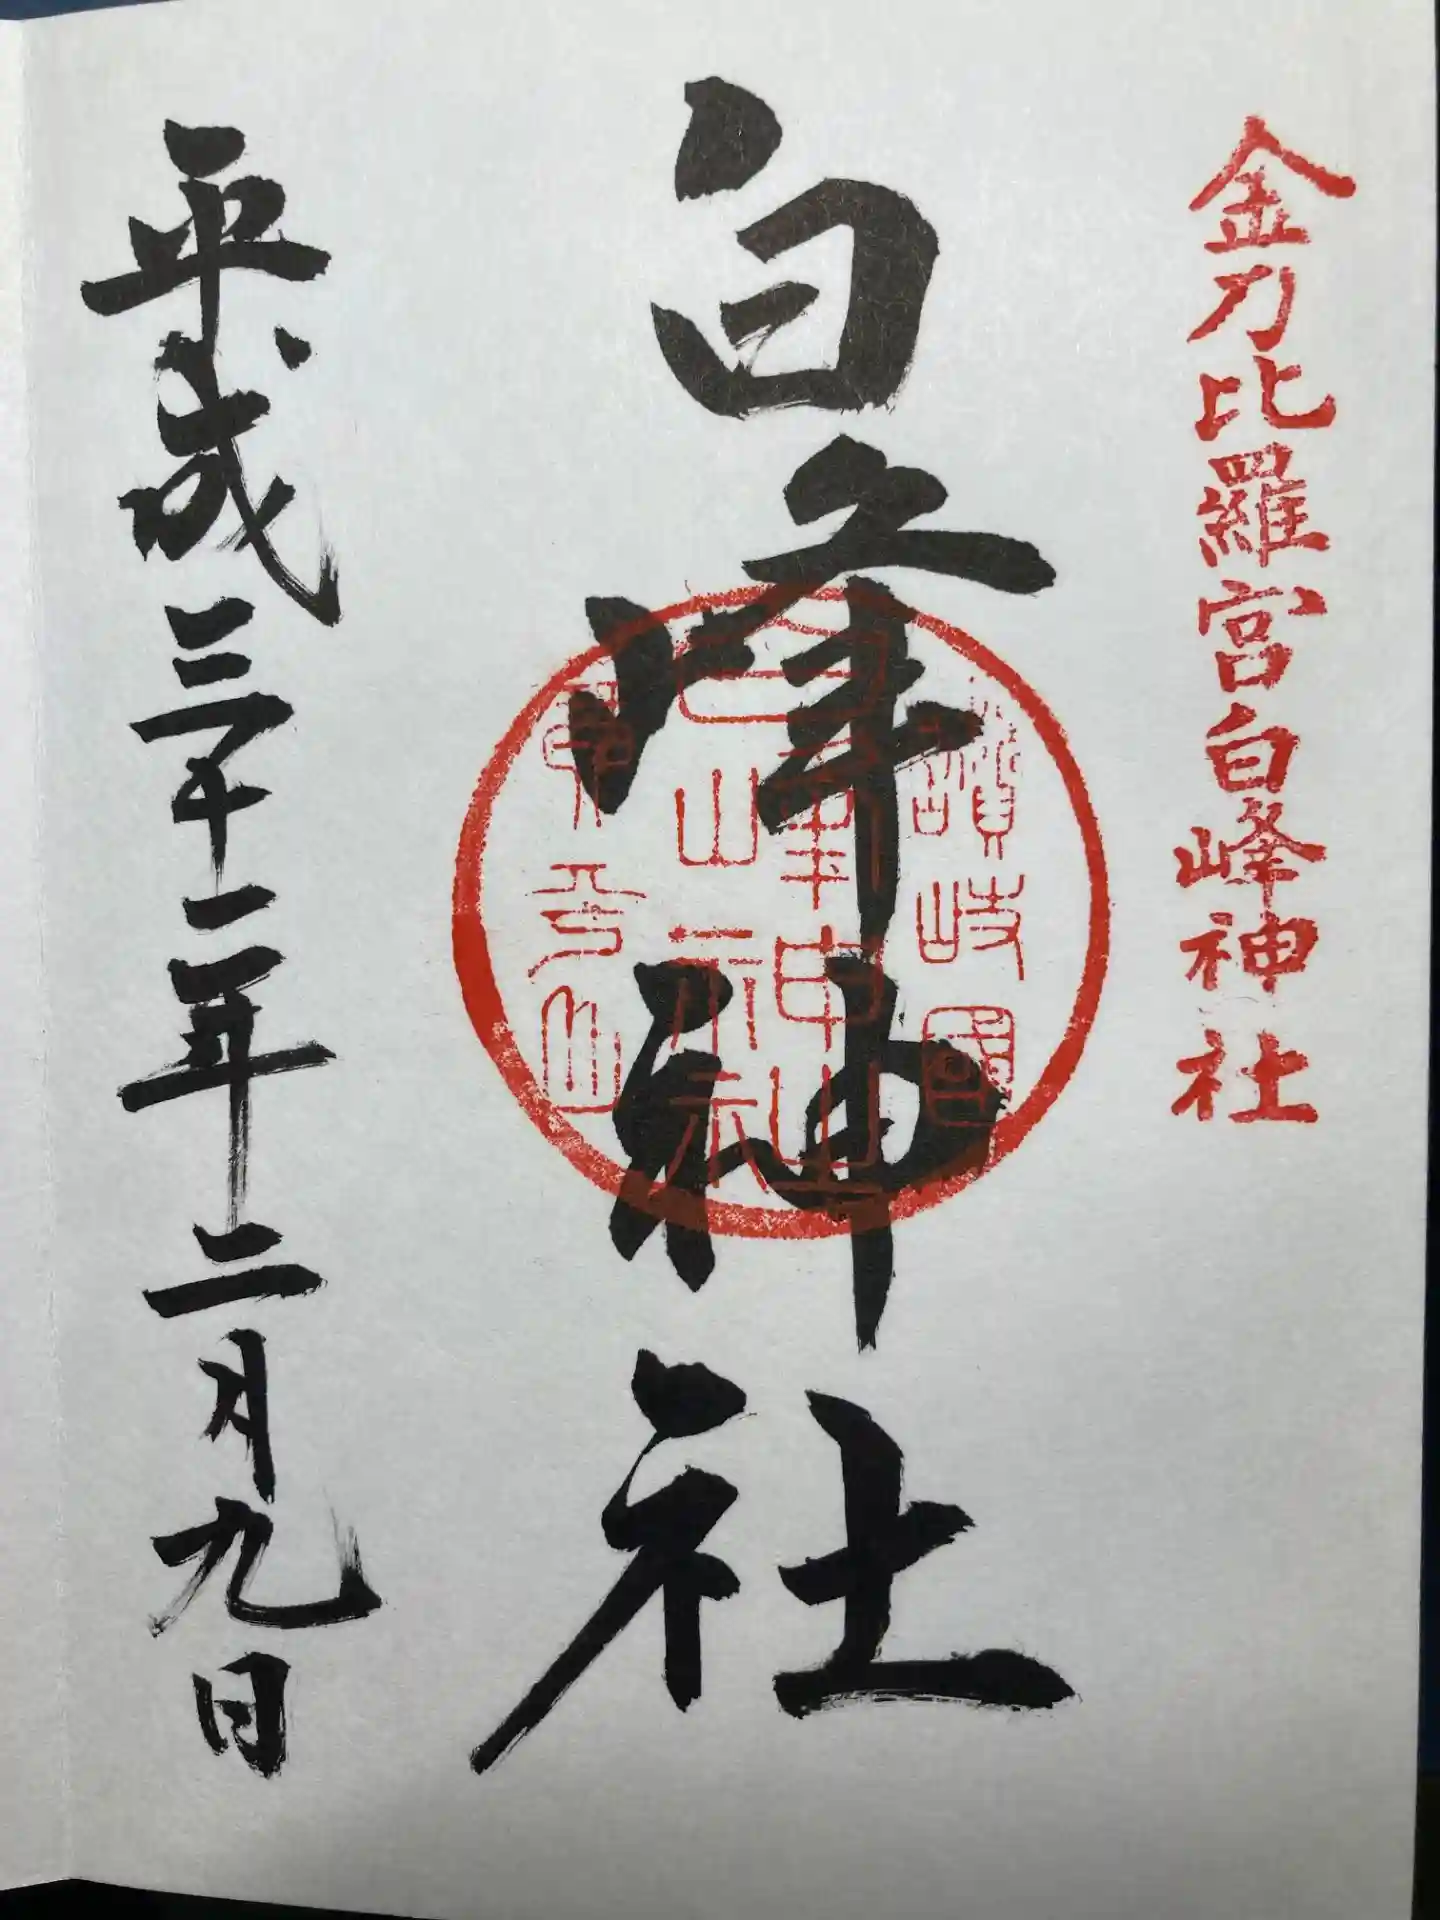 金刀比羅宮白峰神社
白峰神社
讃岐國
白峰神社
象頭山
平成三十一年二月九日